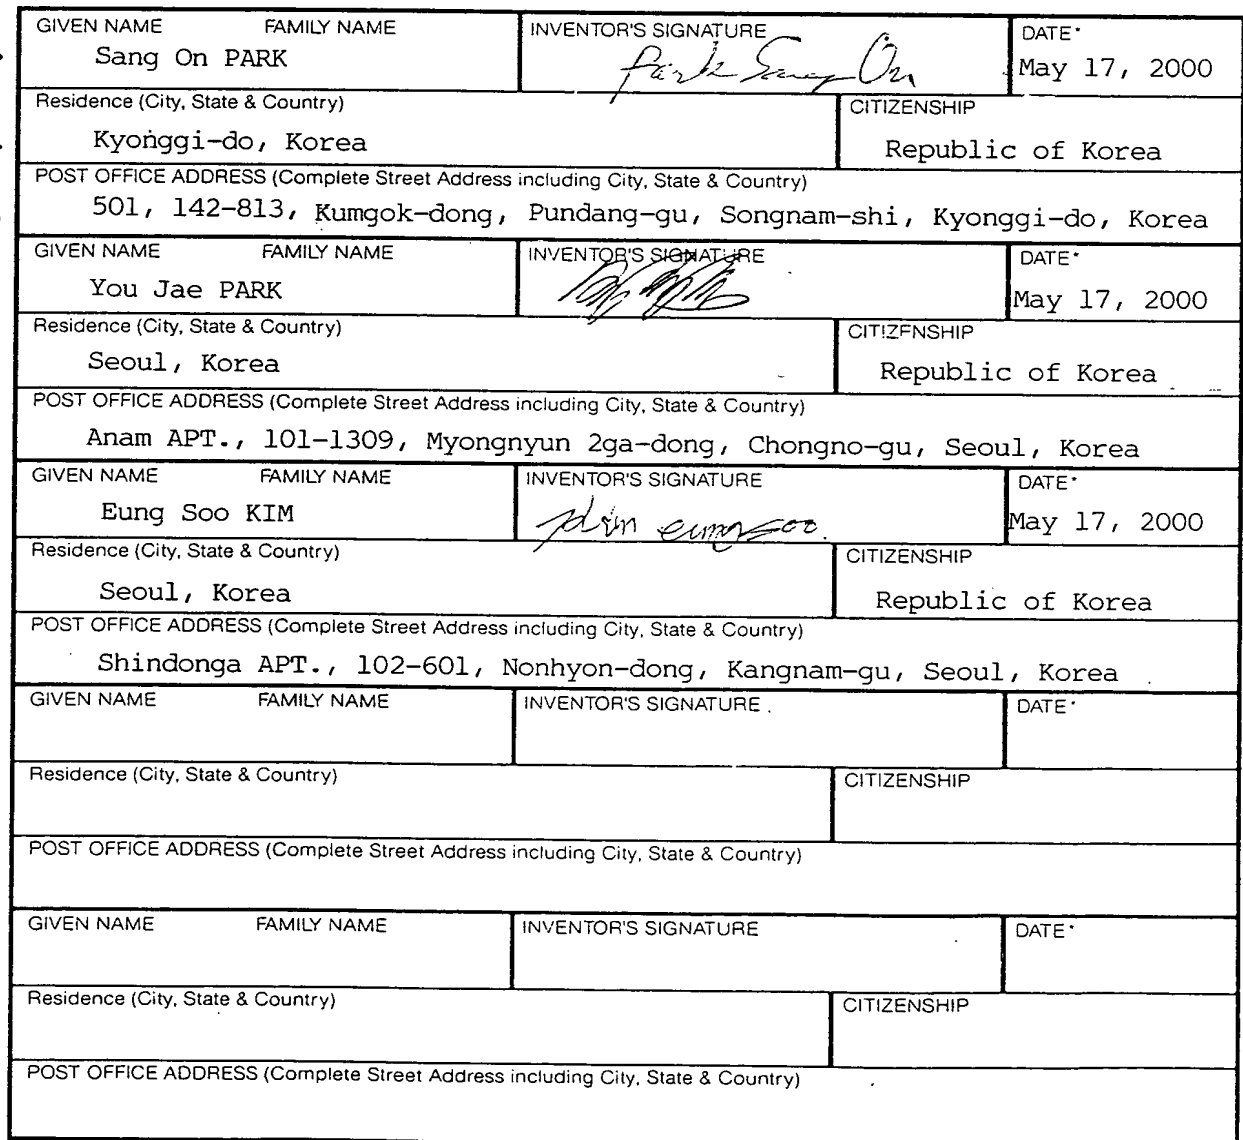 GIVEN NAME FAMILY NAME INVENTOR'S SIGNATURE DATE*
Sang On PARK Park Sang On May 17, 2000
Residence (City, State & Country) CITIZENSHIP
Kyonggi-do, Korea Republic of Korea
POST OFFICE ADDRESS (Complete Street Address including City, State & Country)
501, 142-813, Kumgok-dong, Pundang-gu, Songnam-shi, Kyonggi-do, Korea
GIVEN NAME FAMILY NAME INVENTOR'S SIGNATURE DATE*
You Jae PARK May 17, 2000
Residence (City, State & Country) CITIZENSHIP
Seoul, Korea Republic of Korea
POST OFFICE ADDRESS (Complete Street Address including City, State & Country)
Anam APT., 101-1309, Myongnyun 2ga-dong, Chongno-gu, Seoul, Korea
GIVEN NAME FAMILY NAME INVENTOR'S SIGNATURE DATE*
Eung Soo KIM kim eung soo. May 17, 2000
Residence (City, State & Country) CITIZENSHIP
Seoul, Korea Republic of Korea
POST OFFICE ADDRESS (Complete Street Address including City, State & Country)
Shindonga APT., 102-601, Nonhyon-dong, Kangnam-gu, Seoul, Korea
GIVEN NAME FAMILY NAME INVENTOR'S SIGNATURE DATE*
Residence (City, State & Country) CITIZENSHIP
POST OFFICE ADDRESS (Complete Street Address including City, State & Country)
GIVEN NAME FAMILY NAME INVENTOR'S SIGNATURE DATE*
Residence (City, State & Country) CITIZENSHIP
POST OFFICE ADDRESS (Complete Street Address including City, State & Country)